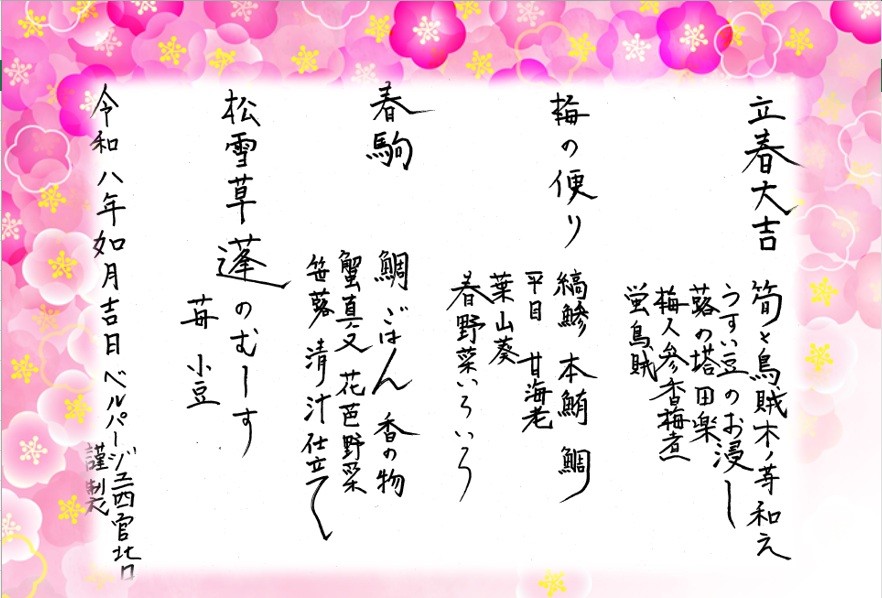 立春大吉
筍と烏賊木ノ芽和え
うすい豆のお浸し
蕗の塔田楽
梅人参香梅煮
蛍烏賊
梅の便り
縞鯵 本鮪 鯛
平目 甘海老
葉山葵
春野菜いろいろ
春駒
鯛ごはん 香の物
蟹真丈 花芭野菜
笹蕗 清汁仕立て
松雪草
蓬のむーす
苺 小豆
令和八年如月吉日 ベルパージュ西宮北口
謹製